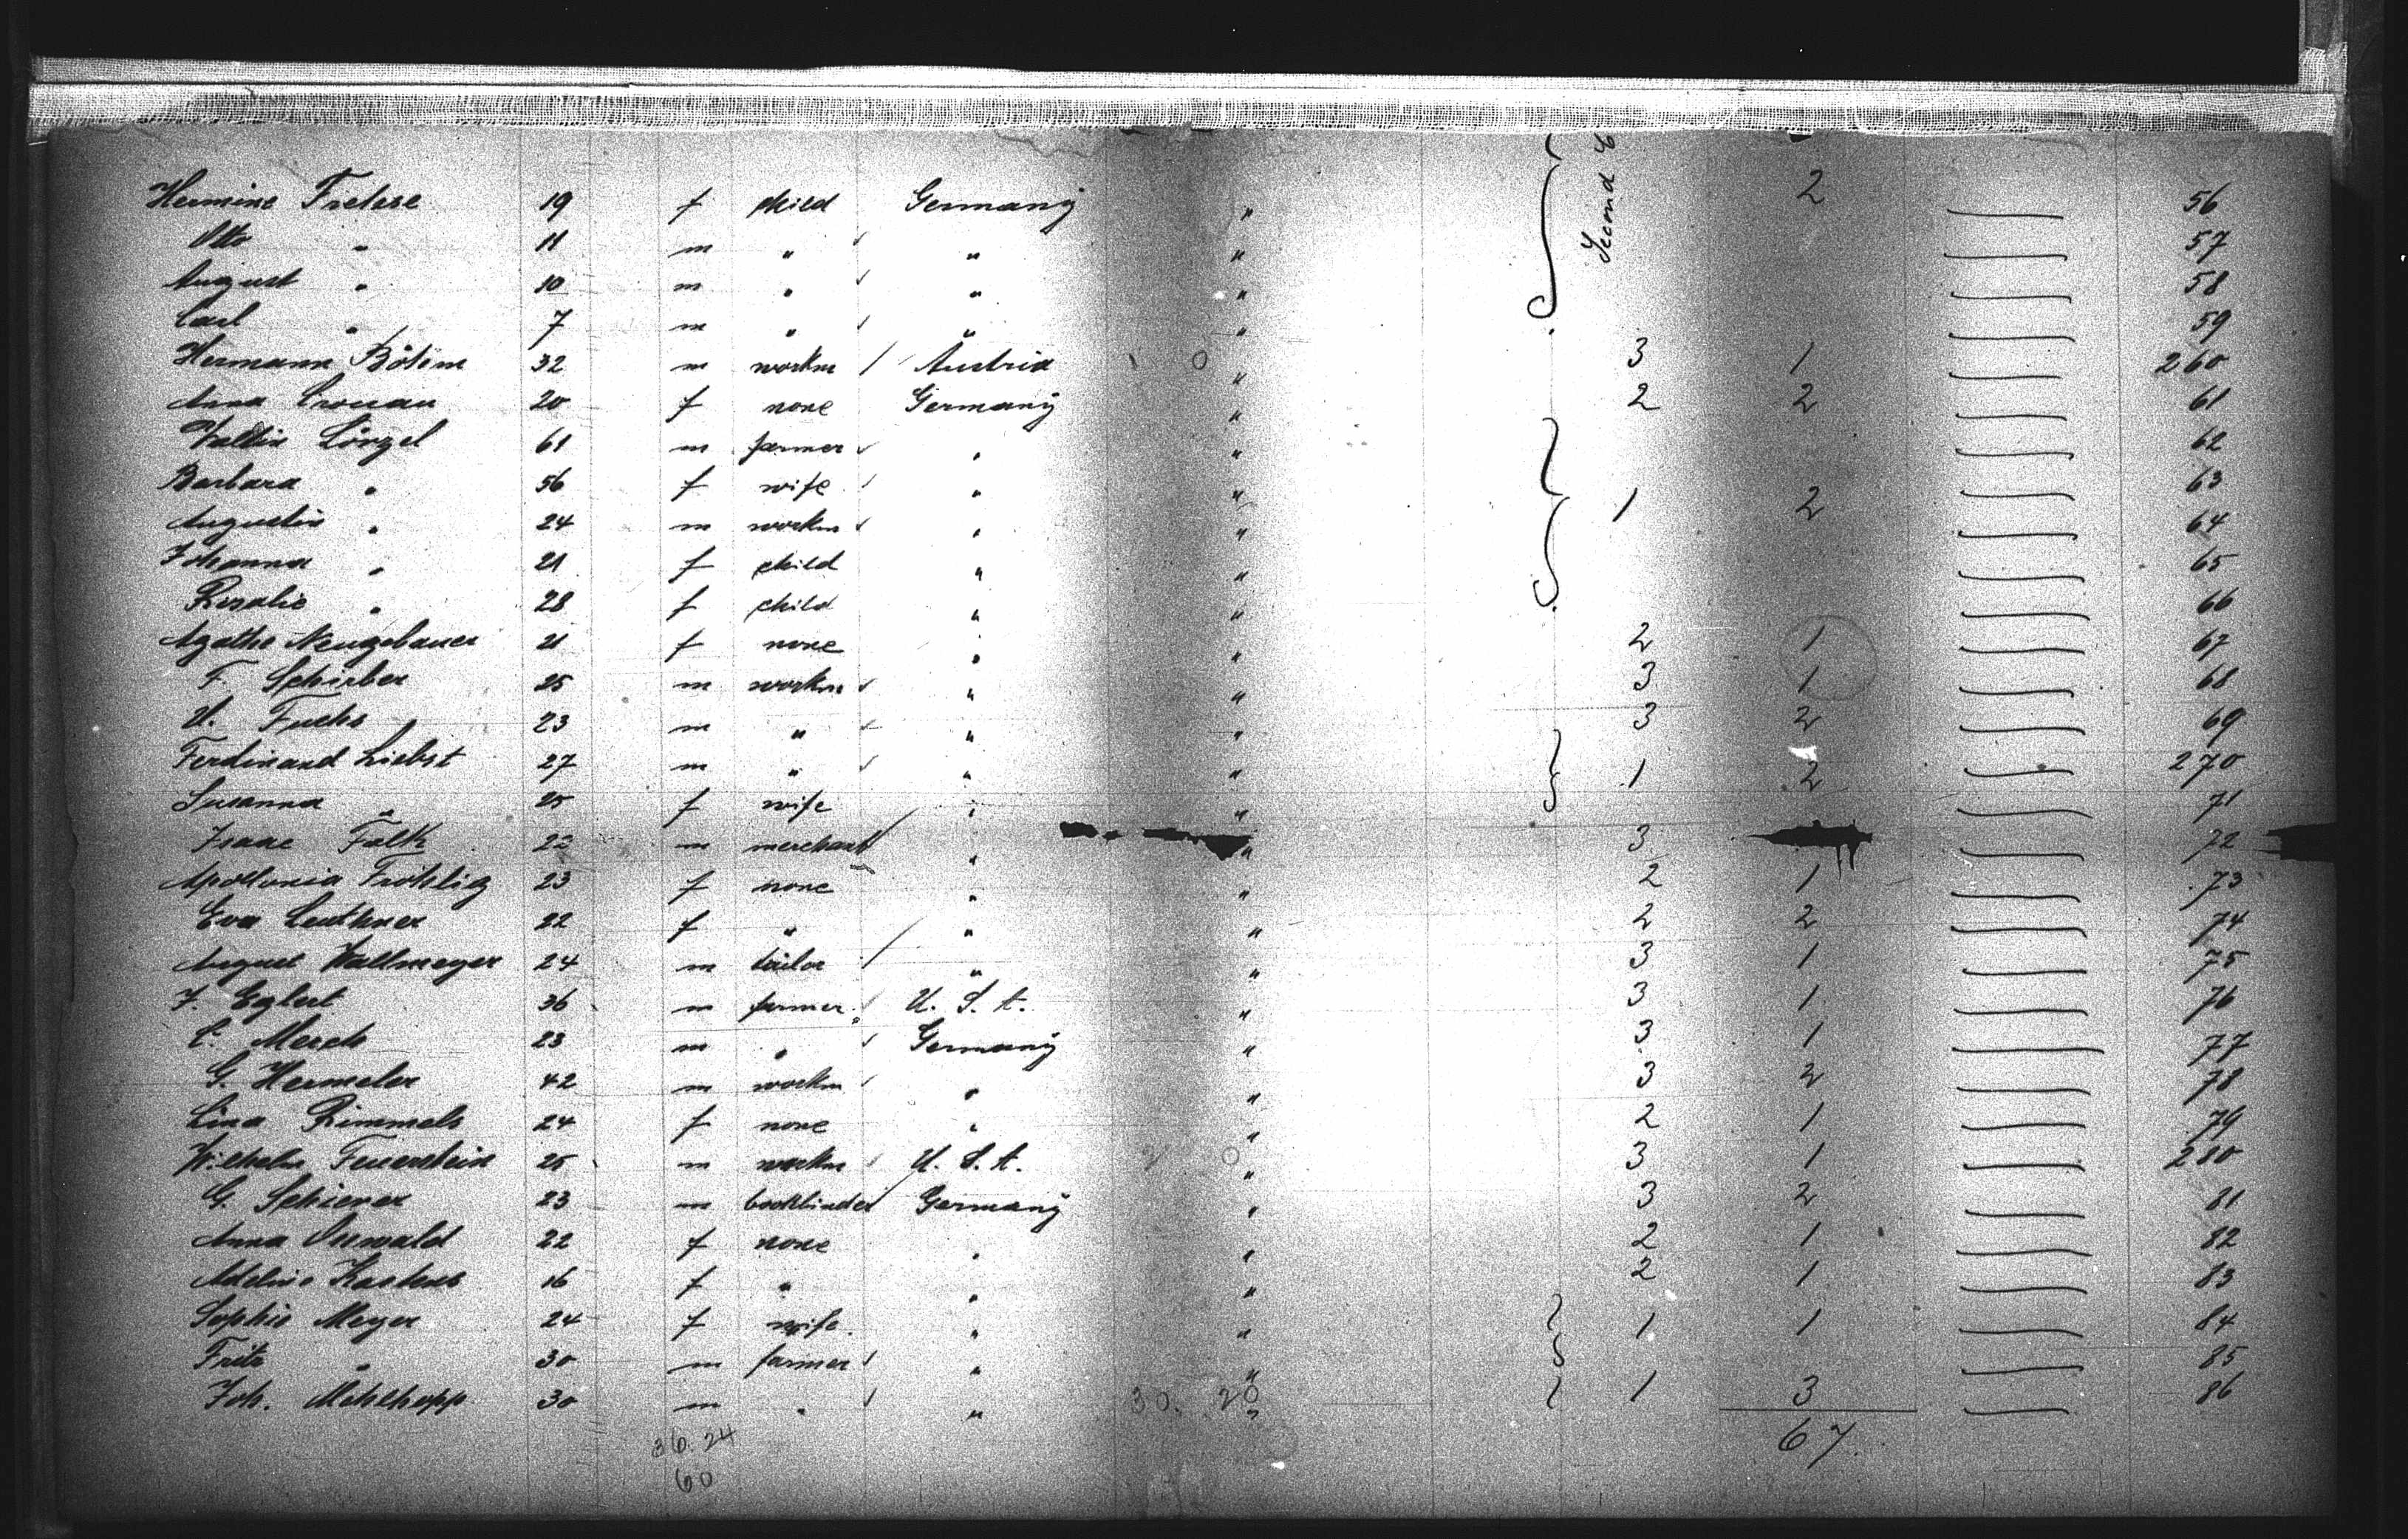 Second C
Hermine Frelese 19 f child Germany " 2 56
Otto " 11 m " " " 57
August " 10 m " " " 58
Carl " 7 m " " " 59
Hermann Böhm 32 m workm Austria 0 " 3 1 260
Anna Cronau 20 f none Germany " 2 2 61
Valtin Löngel 61 m farmer " " 62
Barbara " 56 f wife " " 63
Augustin " 24 m workm " " 1 2 64
Johanna " 21 f child " " 65
Rosalie " 28 f child " " 66
Agathe Neugebauer 21 f none " " 2 1 67
F. Schieber 25 m workm " " 3 1 68
U. Fuchs 23 m " " " 3 2 69
Ferdinand Liebst 27 m " " " 1 2 270
Susanna " 25 f wife " " 71
Isaac Falk 22 m merchant " " 3 72
Apollonia Fröhlig 23 f none " " 2 1 73
Eva Leuthner 22 f " " " 2 2 74
August Wallmeyer 24 m tailor " " 3 1 75
J. Eglert 36 m farmer U. S. A. " 3 1 76
C. Merch 23 m " Germany " 3 1 77
G. Hermeler 42 m workm " " 3 2 78
Lina Rimmels 24 f none " " 2 1 79
Wilhelm Feuerstein 25 m workm U. S. A. 0 " 3 1 280
G. Schierer 23 m bookbinder Germany " 3 2 81
Anna 22 f none " " 2 1 82
Adeline Kastens 16 f " " " 2 1 83
Sophie Meyer 24 f wife " " 1 1 84
Fritz " 30 m farmer " " 85
Joh. Mehlhopp 30 m " " 30. 20 " 1 3 86
36. 24 67.
60